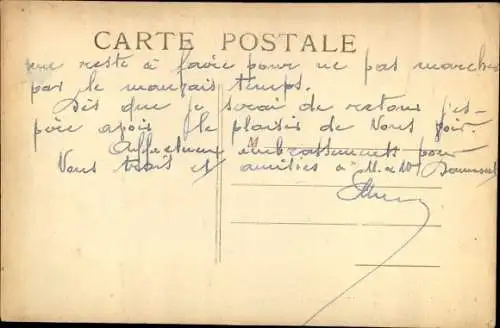 CARTE POSTALE
me reste à faire pour ne pas marcher
par le mauvais temps.
Dès que je serai de retour j'es-
père avoir le plaisir de vous voir.
Affectueux embrassements pour
Vous trois et amitiés à M. et Mme